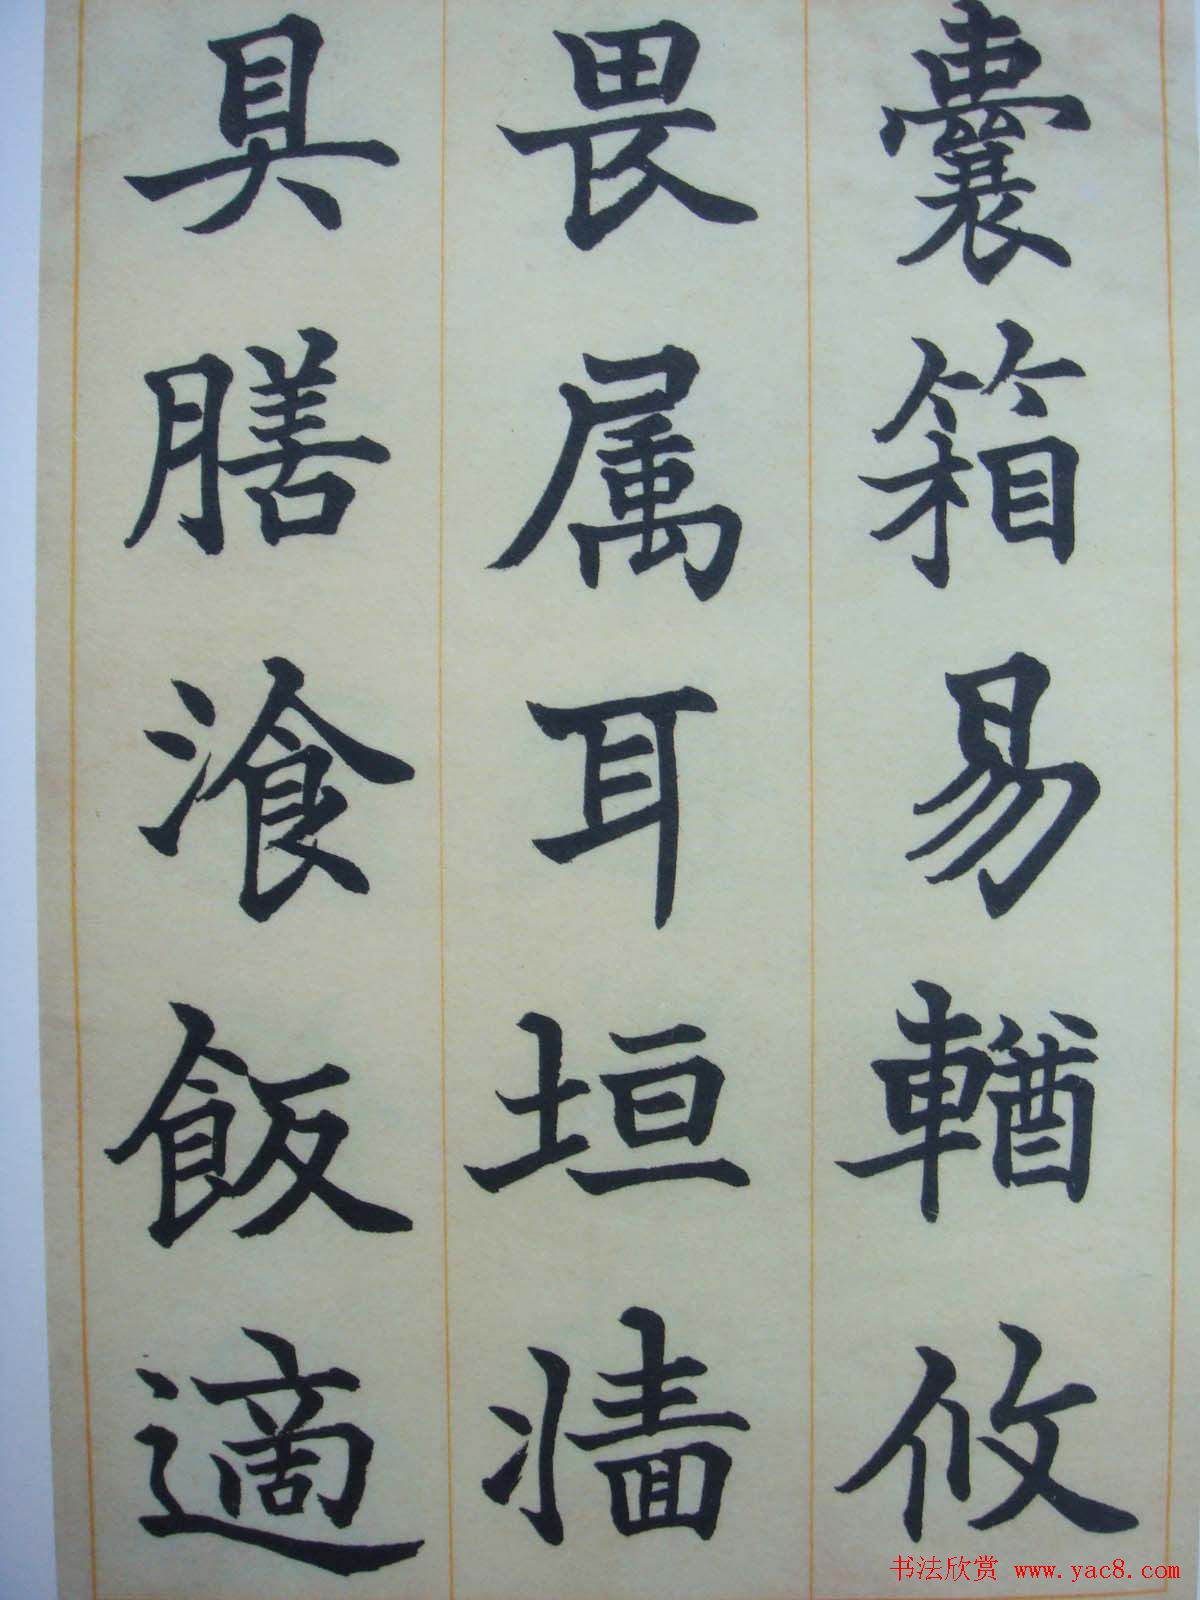 囊箱易輶攸
畏属耳垣墙
具膳湌飯適
书法欣赏 www.yac8.com